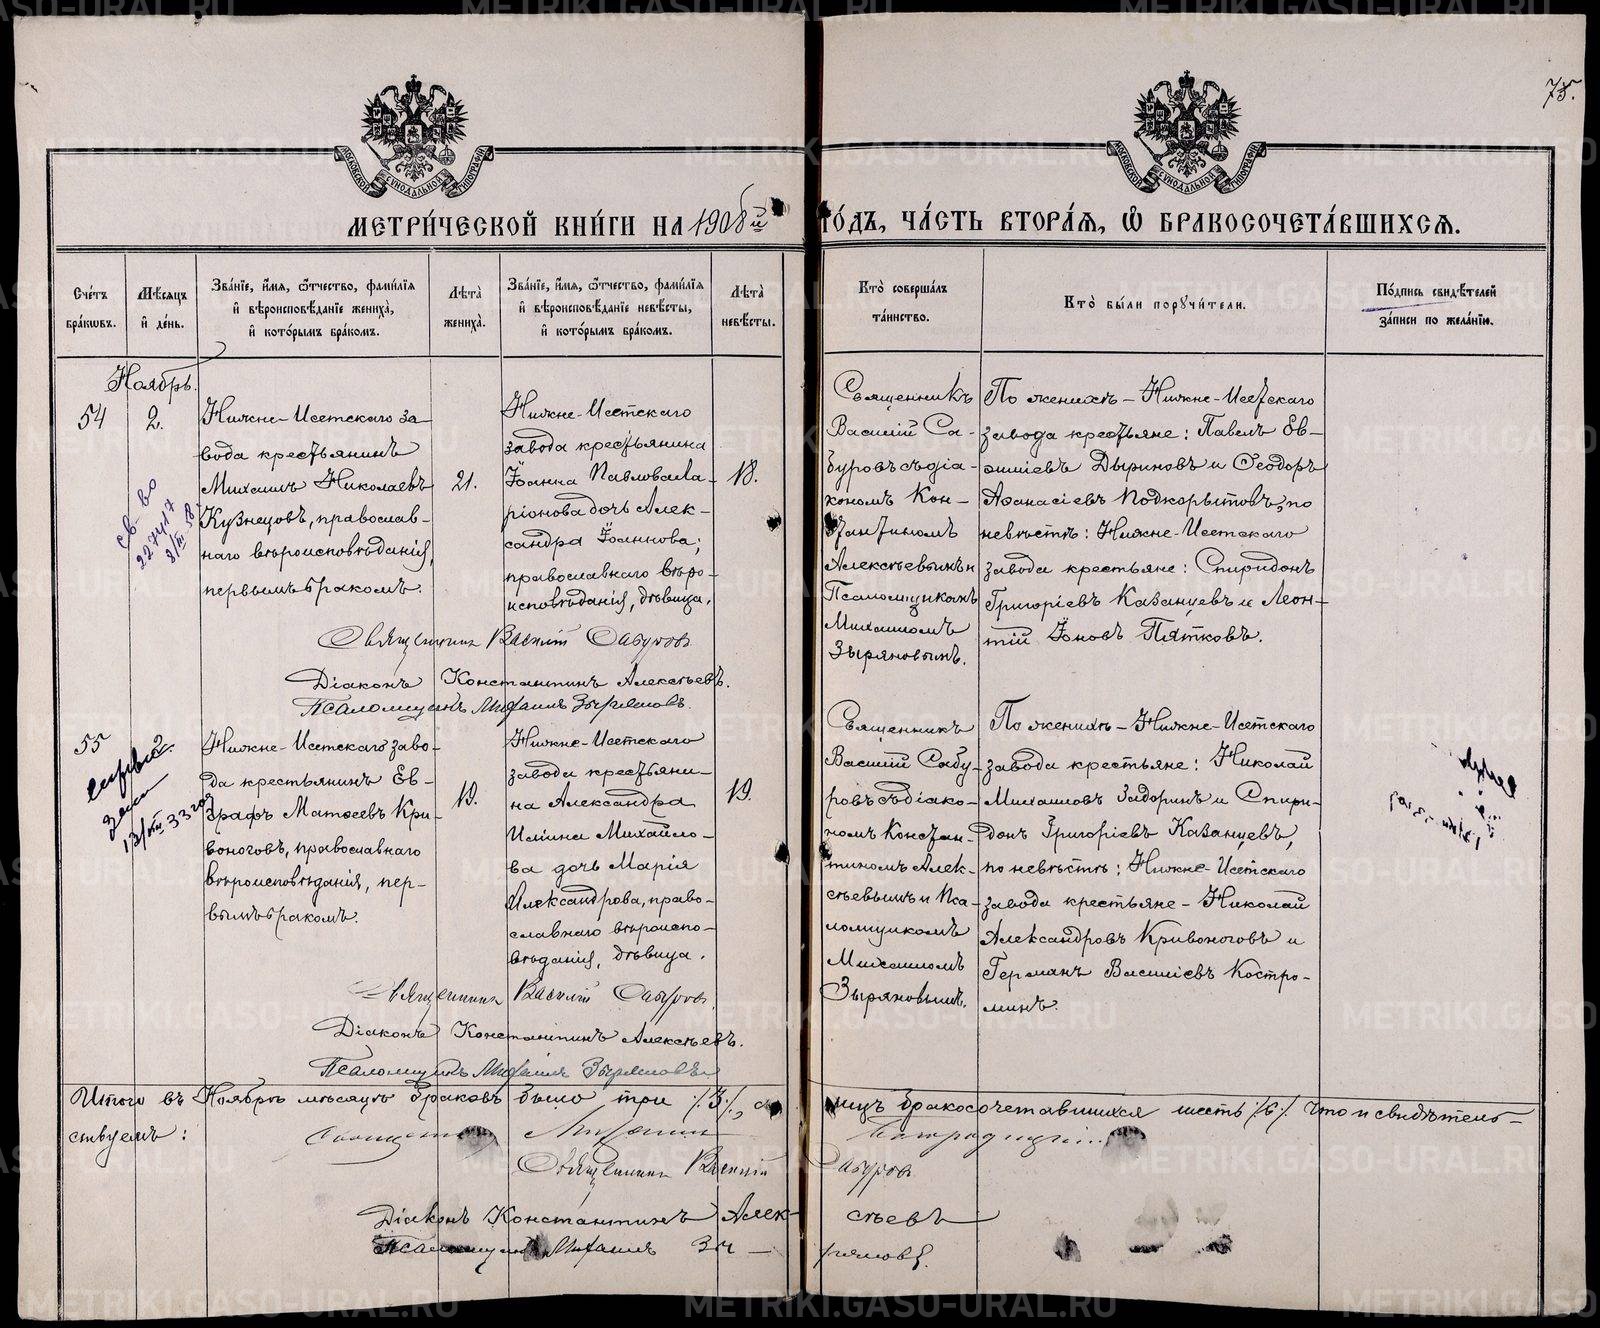 75.
МЕТРИ́ЧЕСКОЙ КНИ́ГИ НА 1908й ГО́ДЪ, ЧА́СТЬ ВТОРА́Я, Ѽ БРАКОСОЧЕТА́ВШИХСЯ.
Сче́тъ бра́кѡвъ.
Мѣ́сяцъ и҆ де́нь.
Зва́нїе, и҆́мя, ѻ҆́тчество, фами́лїя и҆ вѣроисповѣ́данїе жениха̀, и҆ кото́рымъ бра́комъ.
Лѣта̀ жениха̀.
Зва́нїе, и҆́мя, ѻ҆́тчество, фами́лїя и҆ вѣроисповѣ́данїе невѣ́сты, и҆ кото́рымъ бра́комъ.
Лѣта̀ невѣ́сты.
Кто̀ соверша́лъ та́инство.
Кто̀ бы́ли порꙋчи́тели.
По́дпись свидѣ́телей за́писи по жела́нїю.
Ноябрь.
54
2.
Нижне-Исетскаго за-
вода крестьянинъ
Михаилъ Николаевъ
Кузнецовъ, православ-
наго вѣроисповѣданія,
первымъ бракомъ.
21.
Нижне-Исетскаго
завода крестьянина
Іоанна Павлова Ла-
ріонова дочь Алек-
сандра Іоаннова;
православнаго вѣро-
исповѣданія, дѣвица.
18.
Священникъ
Василій Са-
буровъ съ діа-
кономъ Кон-
стантиномъ
Алексѣевымъ и
Псаломщикомъ
Михаиломъ
Зыряновымъ.
По женихѣ - Нижне-Исетскаго
завода крестьяне: Павелъ Ев-
Дыриновъ и Ѳеодоръ
Аѳанасіевъ Подкорытовъ, по
невѣстѣ: Нижне-Исетскаго
завода крестьяне: Спиридонъ
Григоріевъ Казанцевъ и Леон-
тій Іоновъ Пятковъ.
св-во
Священникъ Василій Сабуровъ
Діаконъ Константинъ Алексѣевъ.
Псаломщикъ Михаилъ Зыряновъ.
55
2.
Нижне-Исетскаго заво-
да крестьянинъ Ев-
графъ Матѳеевъ Кри-
воноговъ, православнаго
вѣроисповѣданія, пер-
вымъ бракомъ.
19.
Нижне-Исетскаго
завода крестьяни-
на Александра
Иліина Михайло-
ва дочь Марія
Александрова, право-
славнаго вѣроиспо-
вѣданія, дѣвица.
19.
Священникъ
Василій Сабу-
ровъ съ діако-
номъ Констан-
тиномъ Алек-
сѣевымъ и Пса-
ломщикомъ
Михаиломъ
Зыряновымъ.
По женихѣ - Нижне-Исетскаго
завода крестьяне: Николай
Михаиловъ Задоринъ и Спири-
донъ Григоріевъ Казанцевъ,
по невѣстѣ: Нижне-Исетскаго
завода крестьяне - Николай
Александровъ Кривоноговъ и
Германъ Василіевъ Костро-
минъ.
Священникъ Василій Сабуровъ.
Діаконъ Константинъ Алексѣевъ.
Псаломщикъ Михаилъ Зыряновъ.
Итого въ Ноябрѣ мѣсяцѣ браковъ было три /.3./, лицъ бракосочетавшихся шесть /.6./. Что и свидѣтель-
ствуемъ:
Священникъ Василій Сабуровъ
Діаконъ Константинъ Алексѣевъ
Псаломщикъ Михаилъ Зыряновъ.